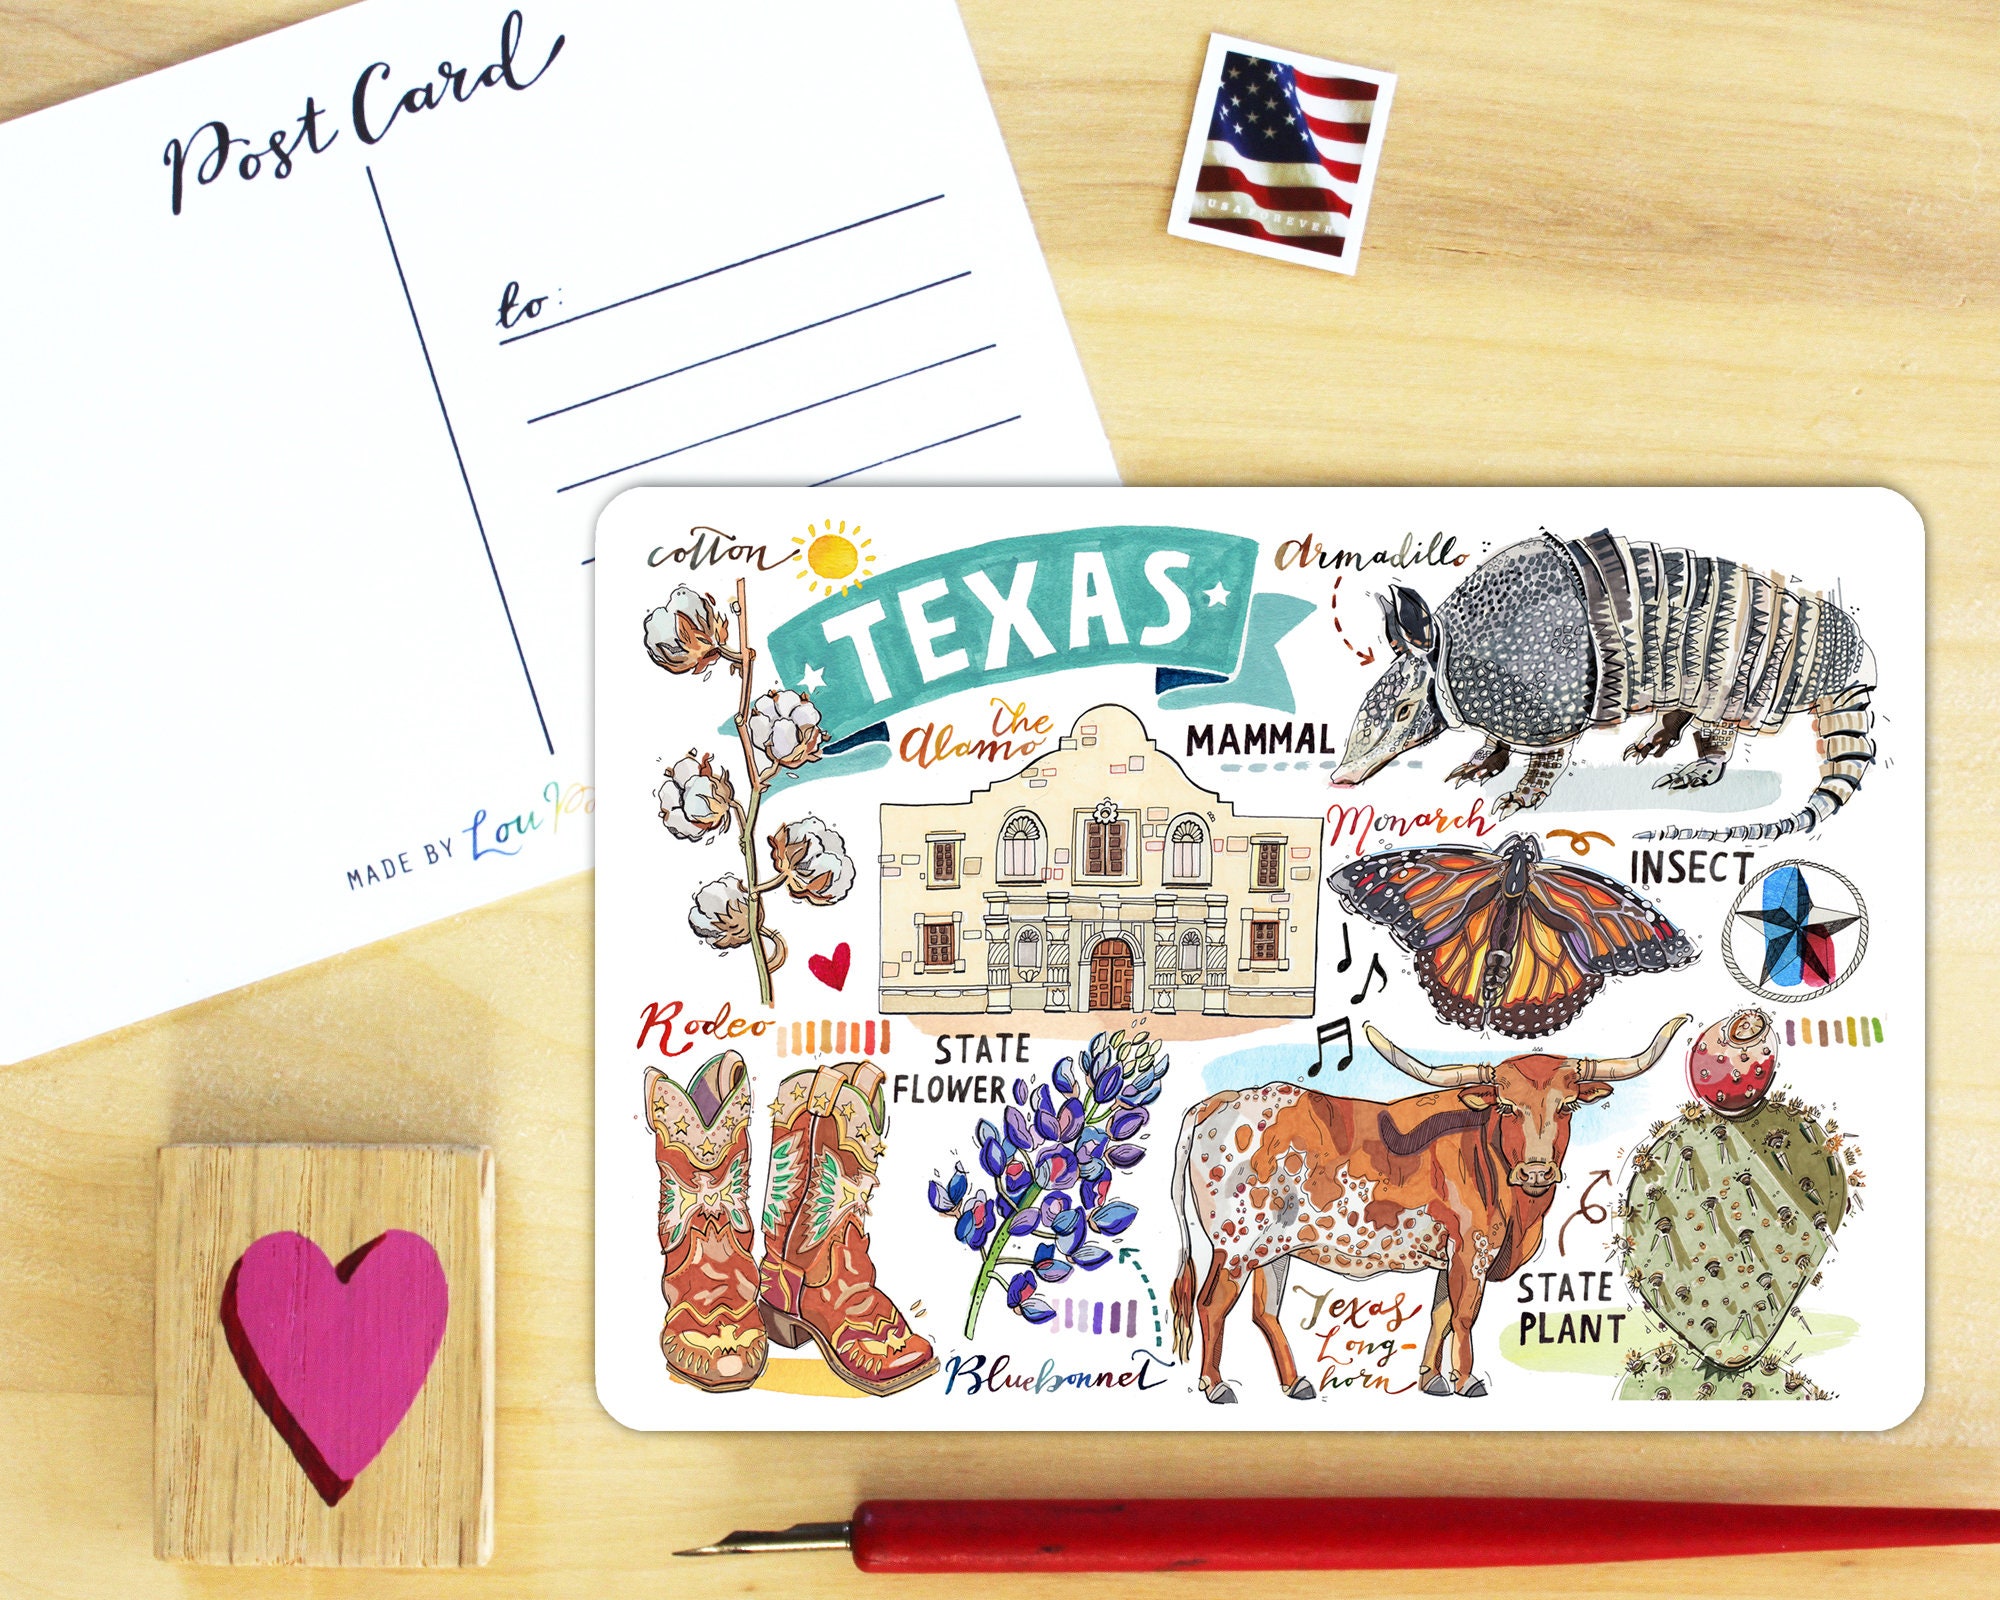 Post Card
to:
MADE BY Lou
USA FOREVER
cotton
TEXAS
Armadillo
The
Alamo
MAMMAL
Monarch
INSECT
Rodeo
STATE
FLOWER
Bluebonnet
Texas
Long-
horn
STATE
PLANT